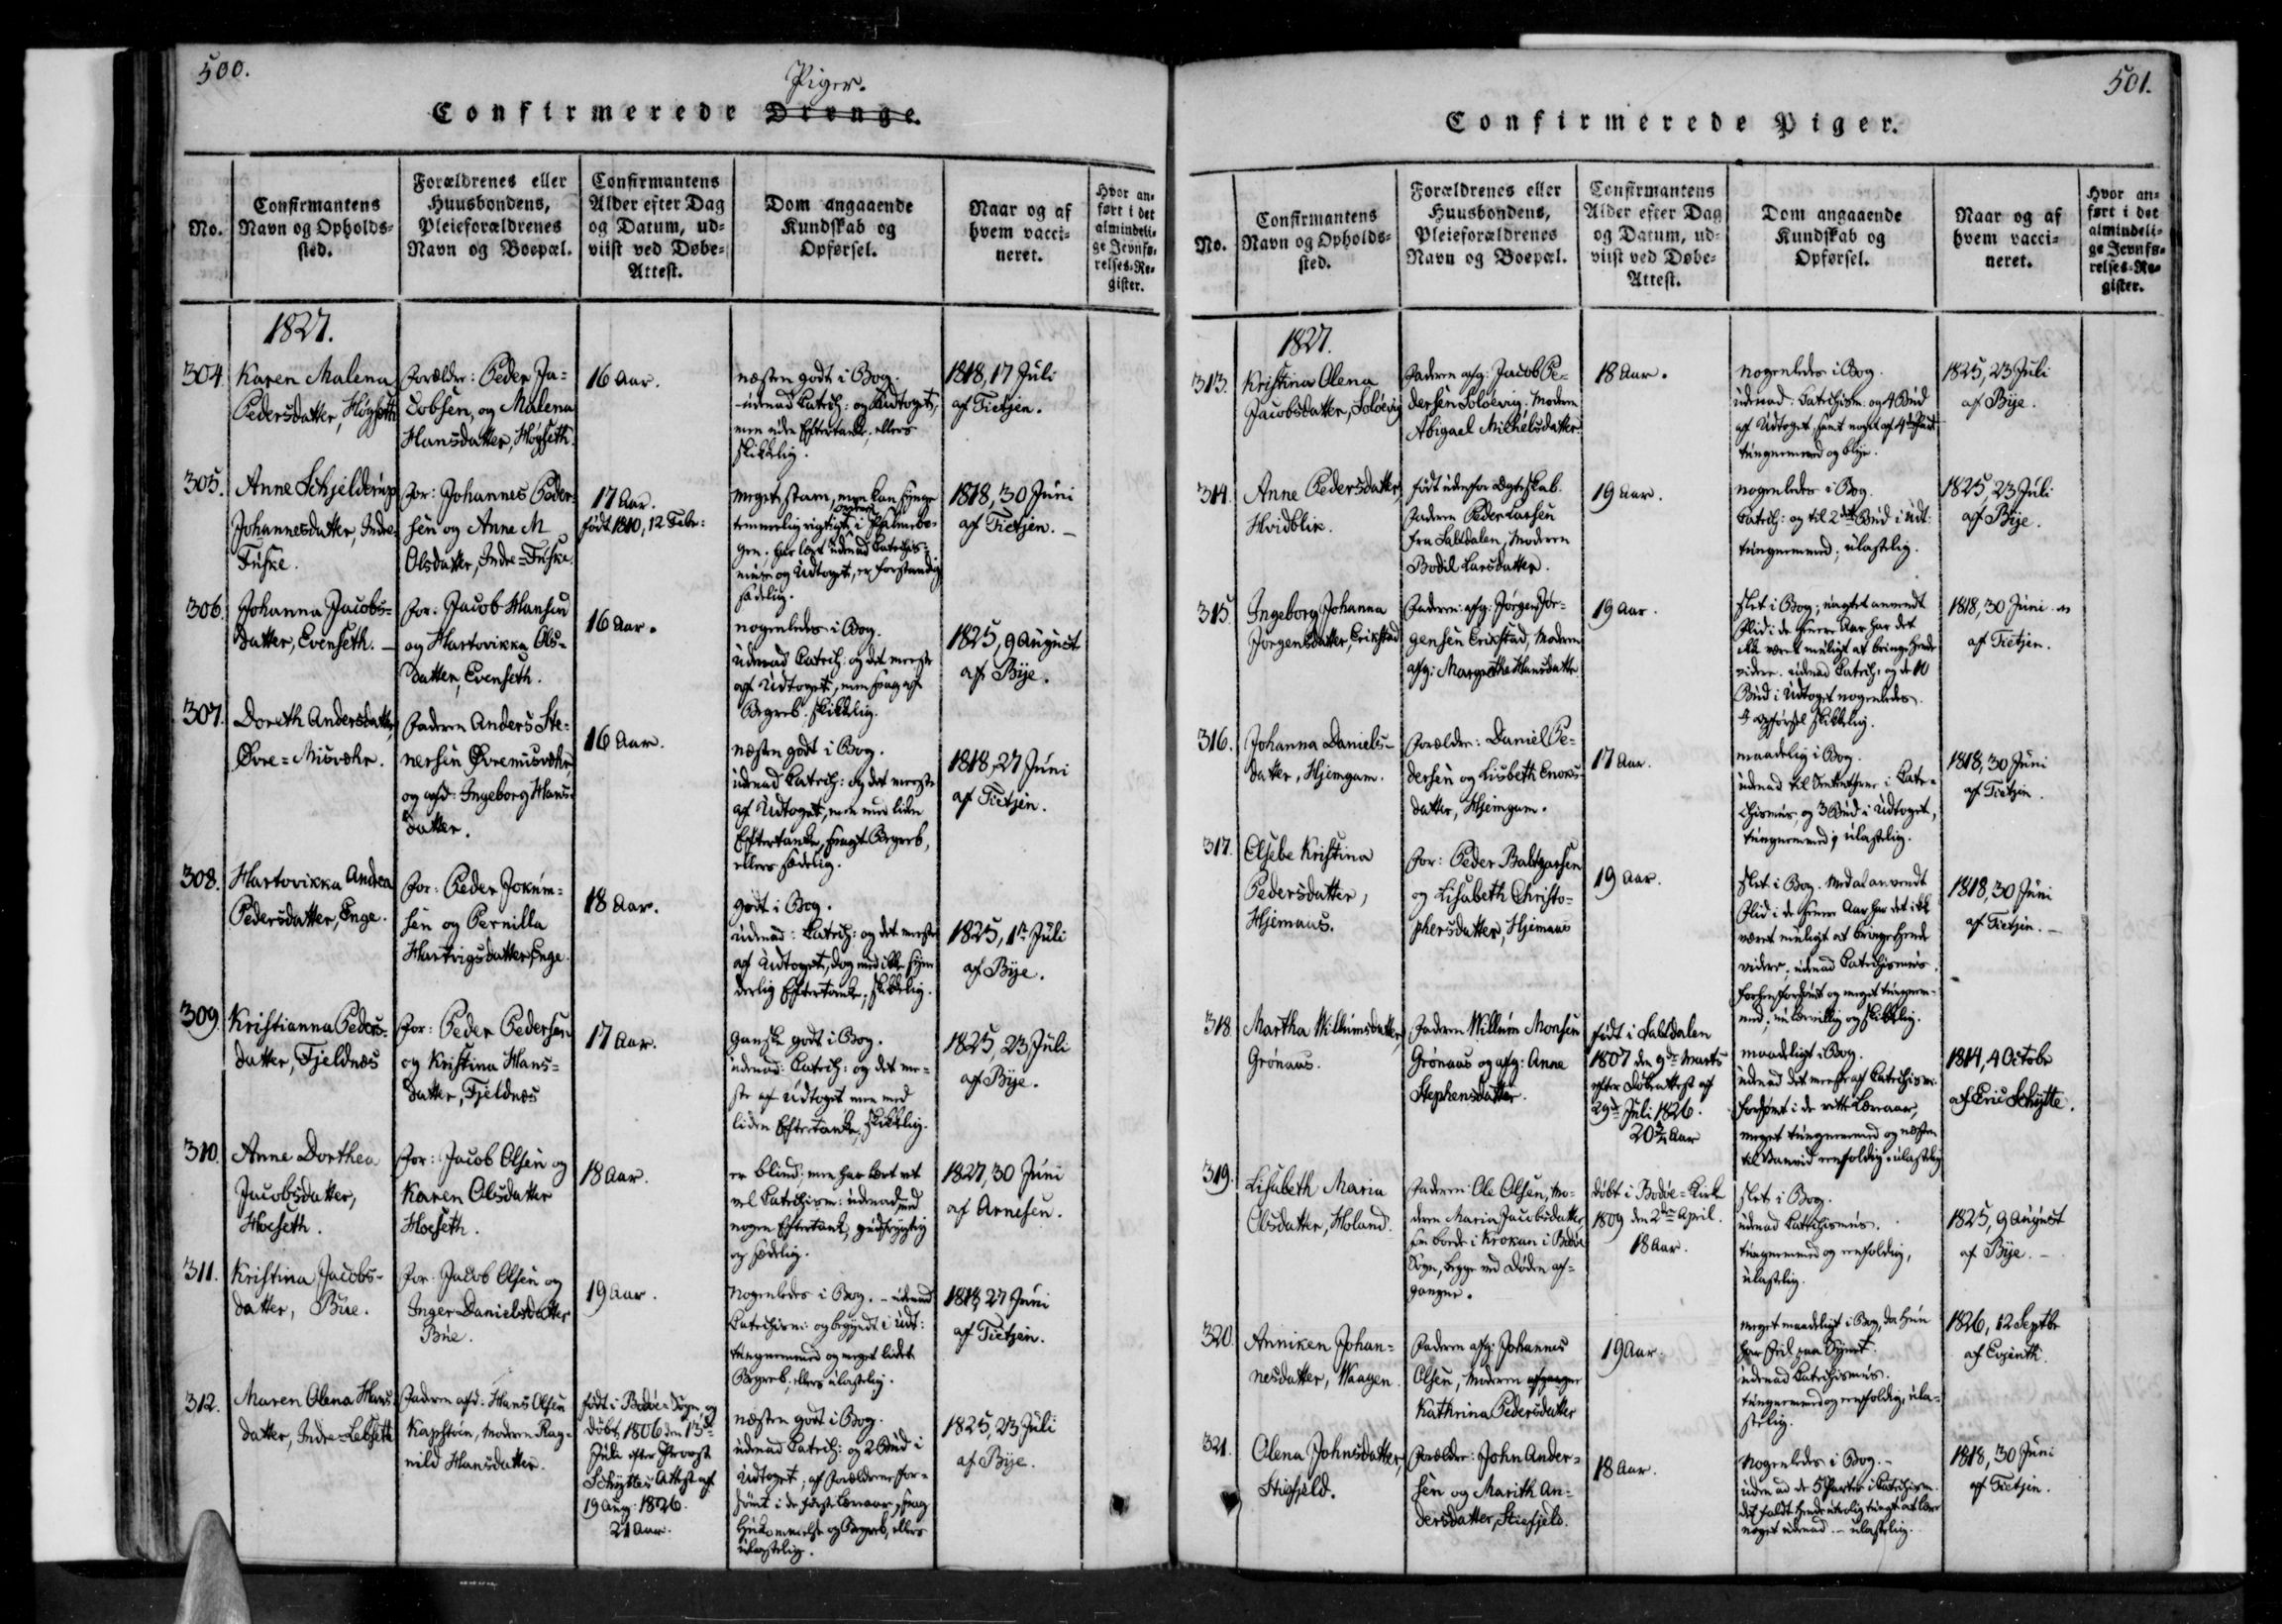 500.
Piger.
Confirmerede Drenge.
No.
Confirmantens
Navn og Opholds-
sted.
Forældrenes eller
Huusbondens,
Pleieforældrenes
Navn og Boepæl.
Confirmantens
Alder efter Dag
og Datum, ud-
viist ved Døbe-
Attest.
Dom angaaende
Kundskab og
Opførsel.
Naar og af
hvem vacci-
neret.
Hvor an-
ført i det
almindeli-
ge Jevnfø-
relses-Re-
gister.
1827.
304.
Karen Malena
Pedersdatter, Högseth
Forældre: Peder Ja-
cobsen, og Malena
Hansdatter, Högseth.
16 Aar.
næsten godt i Bog.
udenad Catech: og Udtoget,
men uden Eftertanke, ellers
skikkelig.
1818, 17 Juli
af Tietjen.
305.
Anne Schjelderup
Johannesdatter, Indre
Fuske.
For: Johannes Peder-
sen og Anne M
Olsdatter, Indre=Fuske.
17 Aar.
født 1810, 12 Febr:
meget stam, men kan synge
temmelig rigtigt i Psalmebo-
gen, har lært udenad Catechis-
mus og Udtoget, er forstandig
sædelig.
1818, 30 Juni
af Tietjen. –
306.
Johanna Jacobs-
datter, Evenseth. –
For: Jacob Hansen
og Hartovikka Ols-
datter, Evenseth.
16 Aar.
nogenledes i Bog.
udenad Catech: og det meeste
af Udtoget, men svag af
Begreb. skikkelig.
1825, 9 August
af Bÿe.
307.
Doreth Andersdatter,
Øvre=Misvær.
Faderen Anders Ste-
nersen Øvremisvær,
og afd: Ingeborg Hans-
datter.
16 Aar.
næsten godt i Bog.
udenad Catech: og det meeste
af Udtoget, men med liden
Eftertanke, svagt Begreb,
ellers sædelig.
1818, 27 Juni
af Tietjen.
308.
Hartovikka Andrea
Pedersdatter, Enge.
For: Peder Jokum-
sen og Pernilla
Hartvigsdatter, Enge.
18 Aar.
godt i Bog.
udenad: Catech: og det meeste
af Udtoget, dog med ikke syn-
derlig Eftertanke, skikkelig.
1825, 1te Juli
af Bÿe.
309.
Kristianna Peders-
datter, Fjeldnæs
For: Peder Pedersen
og Kristina Hans-
datter, Fjeldnæs
17 Aar.
ganske godt i Bog.
udenad: Catech: og det me-
ste af Udtoget men med
liden Eftertanke, skikkelig.
1825, 23 Juli
af Bÿe.
310.
Anne Dorthea
Jacobsdatter,
Hoeseth.
For: Jacob Olsen og
Karen Olsdatter
Hoeseth.
18 Aar.
er blind; men har lært ret
vel Catechism: udenad med
nogen Eftertanke, gudfrygtig
og sædelig.
1827, 30 Juni
af Arnesen.
311.
Kristina Jacobs-
datter, Bue.
For: Jacob Olsen og
Inger Danielsdatter
Bue.
19 Aar.
Nogenledes i Bog. – udenad
Catechism: og begyndt i Udt:
tungnemmed og meget lidet
Begreb, ellers ulastelig.
1818, 27 Juni
af Tietjen.
312.
Maren Olena Hans-
datter, Indre=Løbseth
Faderen afd: Hans Olsen
Kapstøen, Moderen Rag-
nild Hansdatter.
født i Bodøe=Sogn og
døbt 1806 den 13de
Juli efter Provst
Schyttes Attest af
19 Aug: 1826.
21 Aar.
næsten godt i Bog.
udenad Catech: og 2 Bud i
Udtoget; af Forældrene for-
sømt i de første Læreaar, svag
Hukommelse og Begreb, ellers
ulastelig.
1825, 23 Juli
af Bÿe.
501.
Confirmerede Piger.
No.
Confirmantens
Navn og Opholds-
sted.
Forældrenes eller
Huusbondens,
Pleieforældrenes
Navn og Boepæl.
Confirmantens
Alder efter Dag
og Datum, ud-
viist ved Døbe-
Attest.
Dom angaaende
Kundskab og
Opførsel.
Naar og af
hvem vacci-
neret.
Hvor an-
ført i det
almindeli-
ge Jevnfø-
relses-Re-
gister.
1827.
313.
Kristina Olena
Jacobsdatter, Soløevig
Faderen afg: Jacob Pe-
dersen Soløevig. Moderen
Abigael Michelsdatter.
18 Aar.
nogenledes i Bog.
udenad: Catechism: og 4 Bud
af Udtoget, samt noget af 4de Part
tungnemmed og blye.
1825, 23 Juli
af Bÿe.
314.
Anne Pedersdatter,
Hvidblik.
født udenfor Ægteskab.
Faderen Peder Larsen
fra Saltdalen, Moderen
Bodil Larsdatter.
19 Aar.
nogenledes i Bog.
Catech: og til 2det Bud i Udt:
tungnemmed; ulastelig.
1825, 23 Juli
af Bÿe.
315.
Ingeborg Johanna
Jörgensdatter, Erikstad
Faderen: afg: Jørgen Jør-
gensen Erikstad, Moderen
afg: Margrethe Hansdatter
19 Aar.
slet i Bog; uagtet anvendt
Flid i de senere Aar har det
ikke været muligt at bringe hende
videre. udenad Catech: og de 10
Bud i Udtoget nogenledes.
Opførsel skikkelig.
1818, 30 Juni
af Tietjen.
316.
Johanna Daniels-
datter, Hjemgam.
Forældre: Daniel Pe-
dersen og Lisbeth Enocs-
datter, Hjemgam.
17 Aar.
maadelig i Bog.
udenad til Sententserne i Cate-
chismus, og 3 Bud i Udtoget,
tungnemmed; ulastelig.
1818, 30 Juni
af Tietjen.
317.
Elsebe Kristina
Pedersdatter,
Hjemaas.
For: Peder Baltzarsen
og Lisabeth Christo-
phersdatter, Hjemaas
19 Aar.
slet i Bog. Med al anvendt
Flid i de senere Aar har det ikke
været muligt at bringe hende
videre; udenad Catechismus.
forhen forsømt og meget tungnem-
med; skikkelig.
1818, 30 Juni
af Tietjen. –
318
Martha Willumsdatter,
Grønaas.
Faderen Willum Monsen
Grønaas og afg: Anne
Stephensdatter.
født i Saltdalen
1807 den 9de Marts
efter Døbeattest af
29de Juli 1826.
20 Aar
maadeligt i Bog.
udenad det meeste af Catechism:
forsømt i de rette Læreaar,
meget tungnemmed og næsten
til Vanvid eenfoldig. ulastelig
1814, 4 Octobr
af Eric Schÿtte.
319.
Lisabeth Maria
Olsdatter, Holand.
Faderen: Ole Olsen, Mo-
deren Maria Jacobsdatter
som boede i Krokan i Bodøe
Sogn, begge ved Døden af-
gangne.
døbt i Bodøe=Kirke
1809 den 2den April.
18 Aar.
slet i Bog.
udenad Catechismus.
tungnemmed og eenfoldig,
ulastelig.
1825, 9 August
af Bÿe. –
320.
Anniken Johan-
nesdatter, Waagen.
Faderen afg: Johannes
Olsen, Moderen afgangne
Kathrina Pedersdatter
19 Aar.
meget maadeligt i Bog, da hun
har Feil paa Synet.
udenad Catechismus.
tungnemmed og eenfoldig; ula-
stelig.
1826, 12 Septbr
af
321.
Olena Johnsdatter,
Stifjeld.
Forældre: John Ander-
sen og Marith An-
dersdatter, Stiefjeld.
18 Aar.
Nogenledes i Bog. –
udenad de 5 Parter i Catechism.
det faldt hende utrolig tungt at lære
noget udenad. – ulastelig.
1818, 30 Juni
af Tietjen.